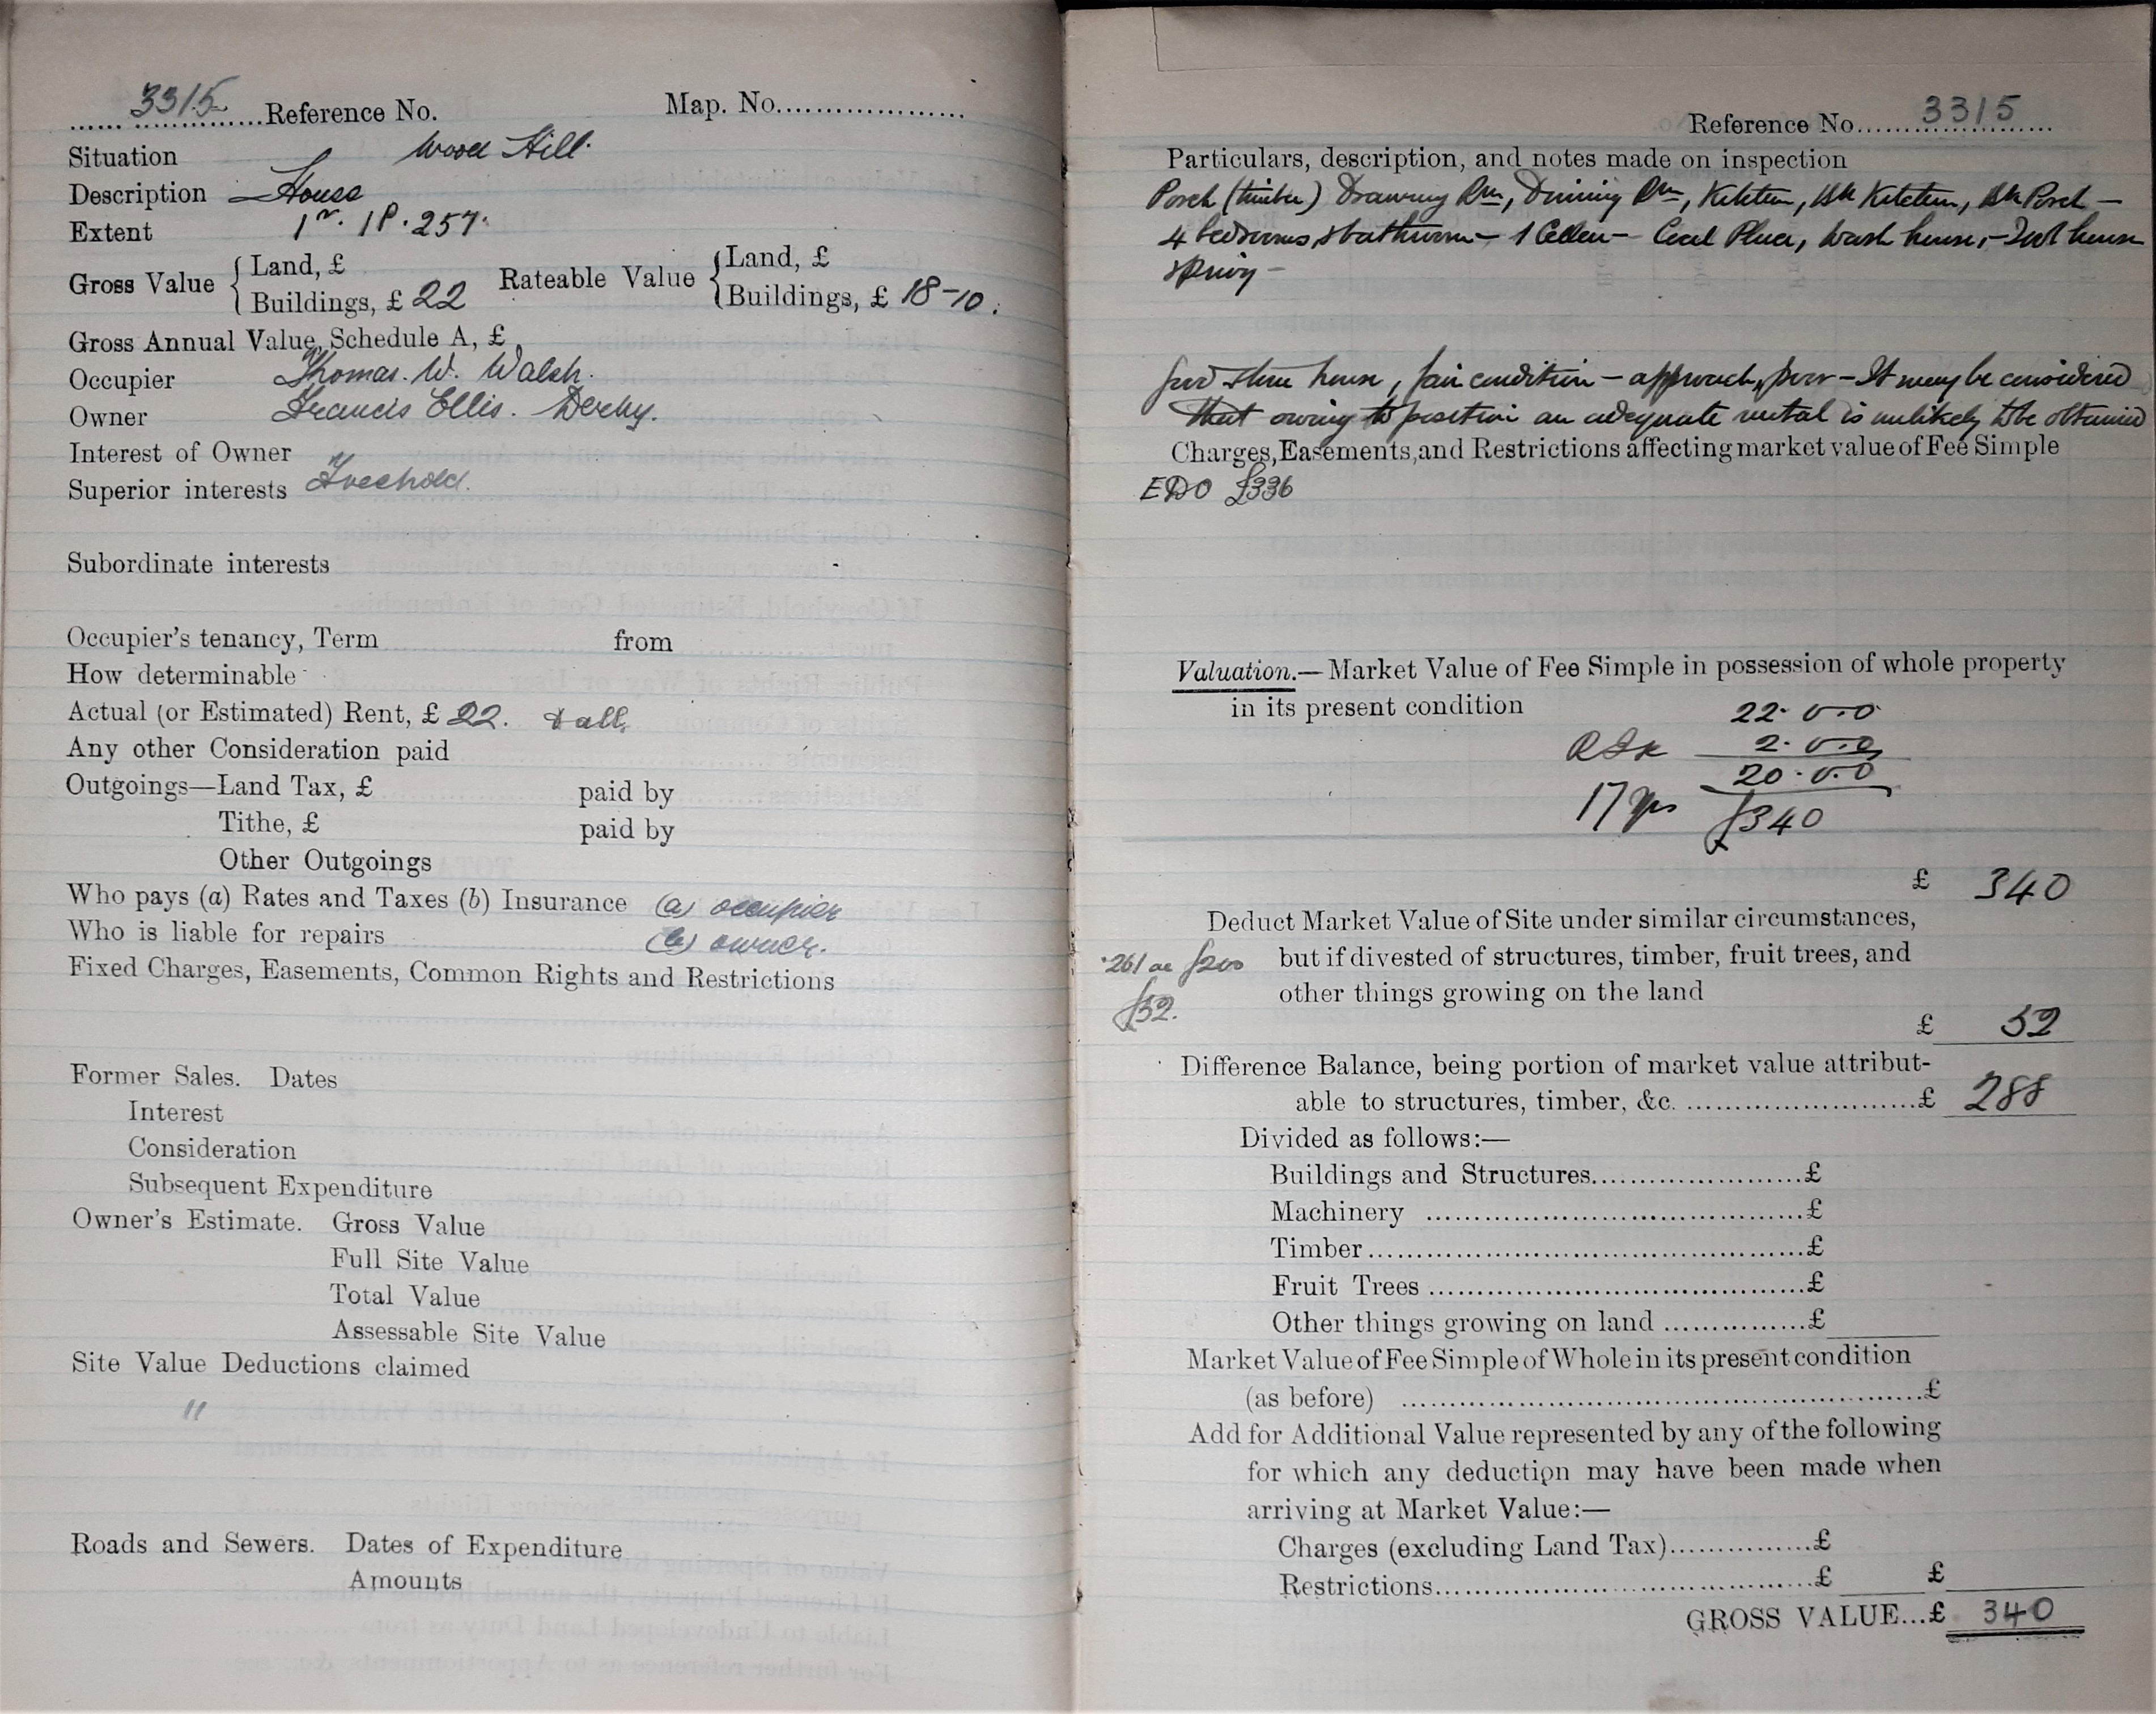 3315 Reference No. Map. No.
Situation Wood Hill.
Description House
Extent 1r. 1P. 257.
Gross Value { Land, £ Rateable Value { Land, £
Buildings, £ 22 Buildings, £ 18-10.
Gross Annual Value, Schedule A, £
Occupier Thomas. W. Walsh.
Owner Francis Ellis. Derby.
Interest of Owner
Superior interests Freehold.
Subordinate interests
Occupier's tenancy, Term from
How determinable
Actual (or Estimated) Rent, £ 22.
Any other Consideration paid
Outgoings—Land Tax, £ paid by
Tithe, £ paid by
Other Outgoings
Who pays (a) Rates and Taxes (b) Insurance (a) occupier
Who is liable for repairs (b) owner.
Fixed Charges, Easements, Common Rights and Restrictions
Former Sales. Dates
Interest
Consideration
Subsequent Expenditure
Owner's Estimate. Gross Value
Full Site Value
Total Value
Assessable Site Value
Site Value Deductions claimed
"
Roads and Sewers. Dates of Expenditure
Amounts
Reference No. 3315
Particulars, description, and notes made on inspection
Porch (timber) Drawing Rm, Dining Rm, Kitchen, Bk Kitchen, Bk Porch —
4 bedrooms, bathroom — 1 Cellar — Coal Place, Wash house, — Tool house
& privy —
good stone house, fair condition — approach, poor — It may be considered
that owing to position an adequate rental is unlikely to be obtained
Charges, Easements, and Restrictions affecting market value of Fee Simple
EDO £336
Valuation.— Market Value of Fee Simple in possession of whole property
in its present condition 22.0.0
2.0.0
20.0.0
17 yrs £340
£ 340
Deduct Market Value of Site under similar circumstances,
.261 ac £200 but if divested of structures, timber, fruit trees, and
other things growing on the land
£52.
£ 52
Difference Balance, being portion of market value attribut-
able to structures, timber, &c. £ 288
Divided as follows:—
Buildings and Structures £
Machinery £
Timber £
Fruit Trees £
Other things growing on land £
Market Value of Fee Simple of Whole in its present condition
(as before) £
Add for Additional Value represented by any of the following
for which any deduction may have been made when
arriving at Market Value:—
Charges (excluding Land Tax) £
Restrictions £ £
GROSS VALUE...£ 340